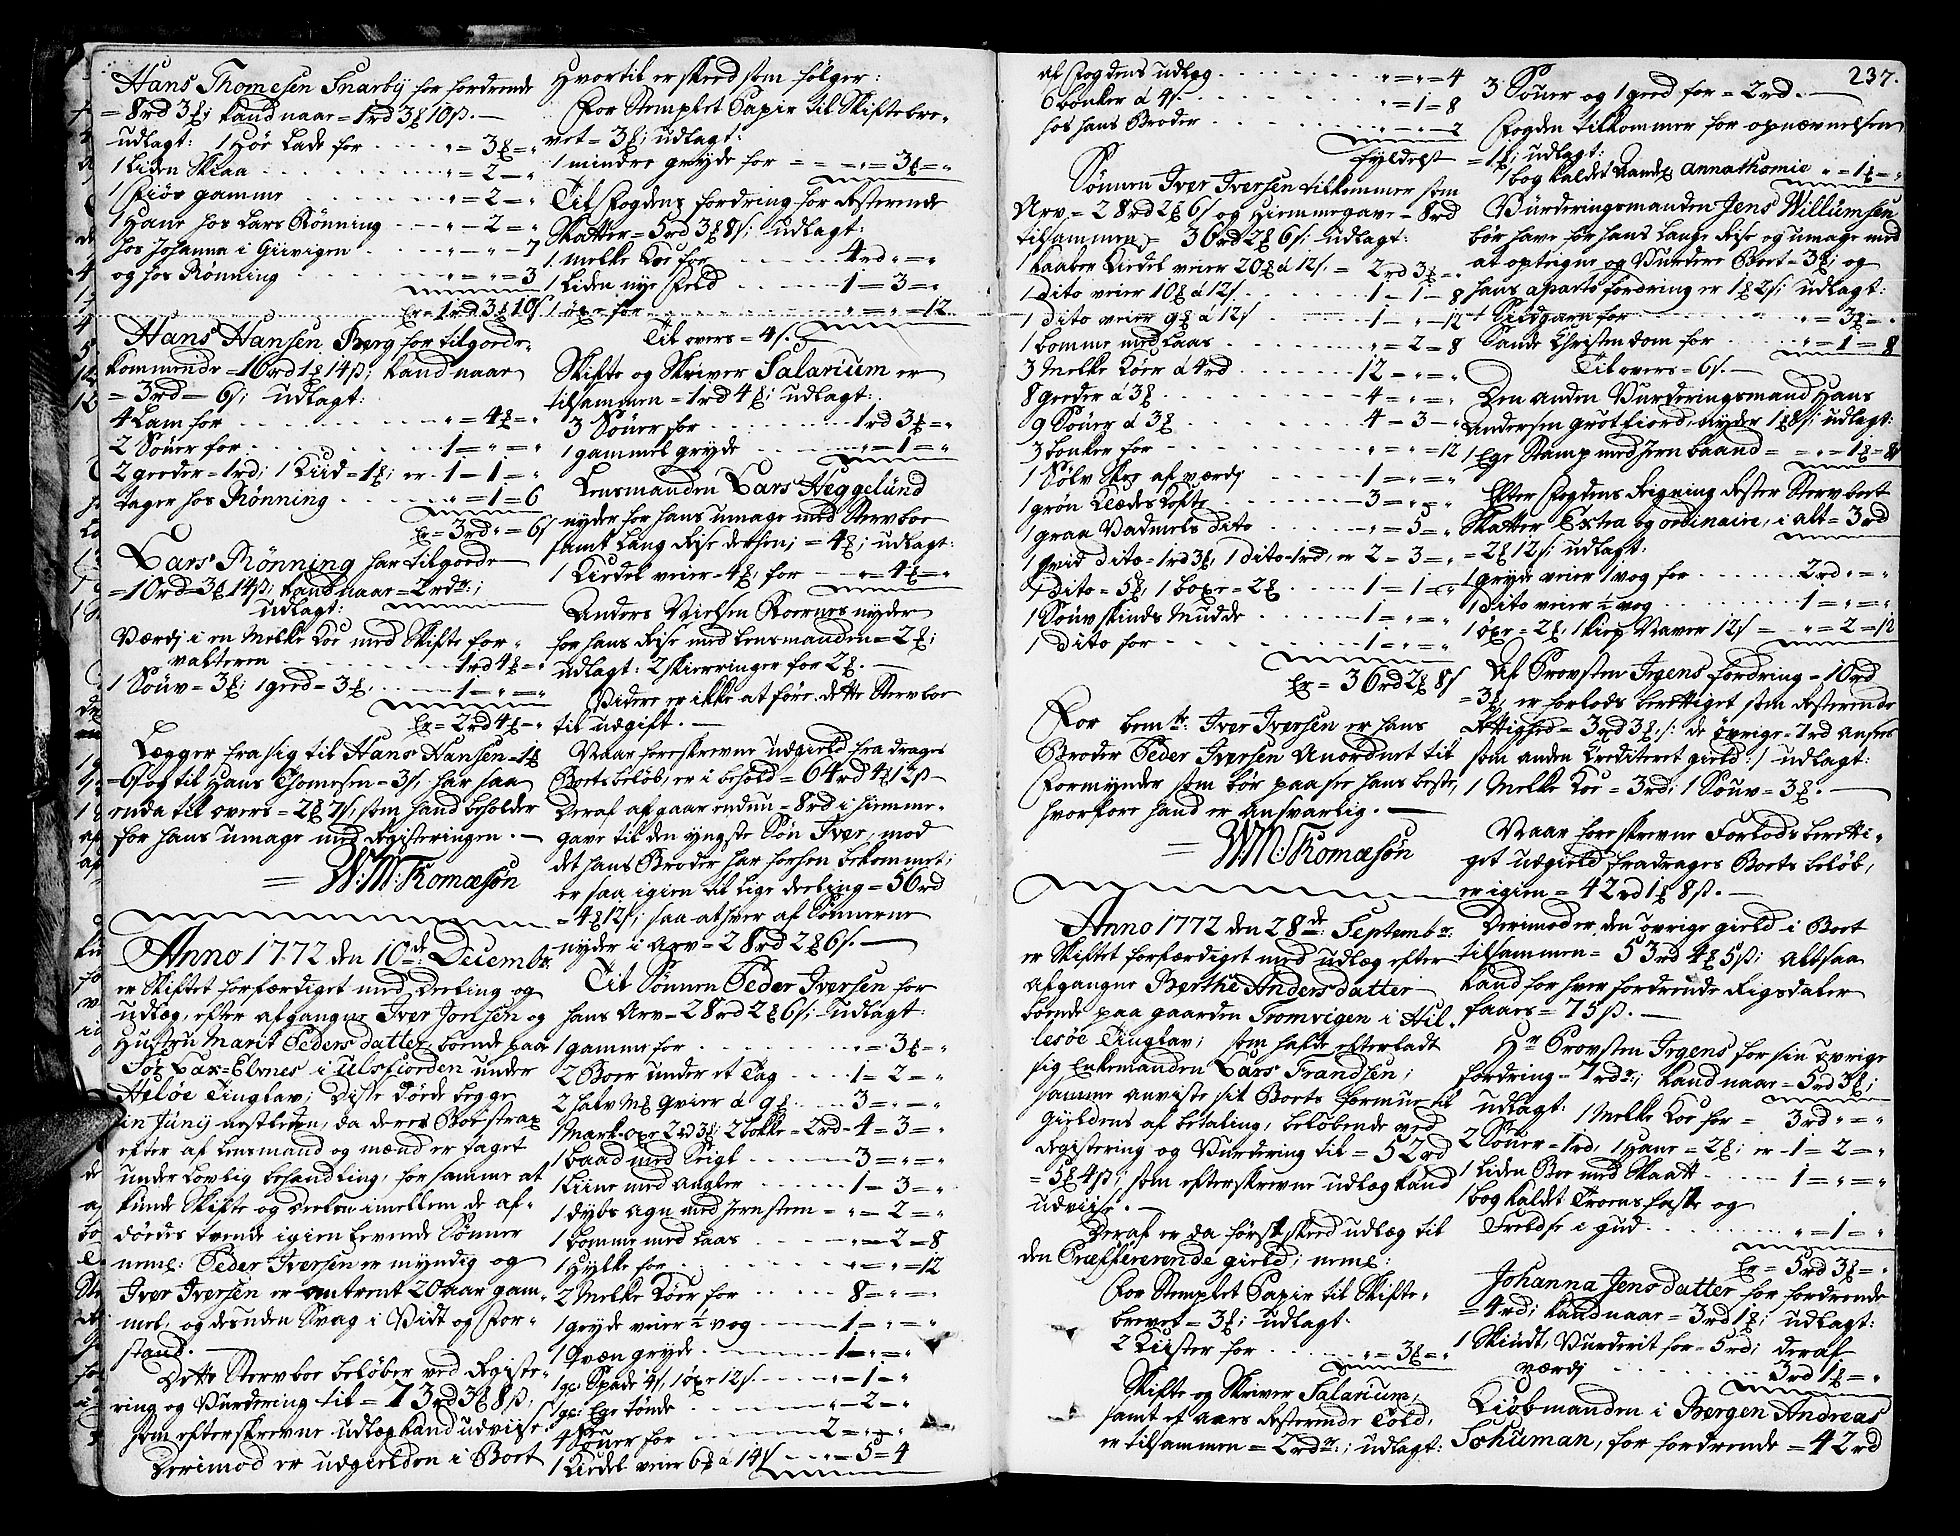 Hans Thomesen Snarby for fordrende
= 8rd 3ƒ; kand naar = 1rd 3ƒ 10ß. —
udlagt: 1 Høe Lade for " = 3ƒ = "
1 Liden Skiaa " = 2 = "
1 Fiøs gamme " = 2 = "
1 Hane hos Lars Rønning " = 2 = "
hos Johanna i Giivigen " = " = 7
og hos Rønning " = " = 3
Er = 1rd 3ƒ 10ß
Hans Hansen Berg for tilgode-
kommende = 10rd 1ƒ 14ß; kand naar
= 3rd = 6ß; udlagt:
4 Lam for " = 4ƒ = "
2 Søuer for 1 = " = "
2 geeder = 1rd; 1 Kiid = 1ƒ; er 1 = 1 = "
tager hos Rønning " = 1 = 6
Er = 3rd " = 6ß
Lars Rønning har tilgode
= 10rd = 3ƒ 14ß; kand naar = 2rdr:;
udlagt:
Værdj i en Melke Koe med Skifte for-
valteren 1rd 4ƒ = "
1 Søuv = 3ƒ; 1 geed = 3ƒ, 1 = " = "
Er = 2rd 4ƒ = "
Legger fra sig til Hans Hansen = 1ƒ
= og til Hans Thomesen = 3ß; har saa
enda til overs = 2ƒ 7ß; som hand beholder
for hans umage med Registeringen. —
= W: M: Thomasøn
Anno 1772 den 10de: Decembr:
er Skiftet forfærdiget med Deeling og
udlæg, efter afgangne Iver Joensen og
Hustru Marit Pedersdatter boende paa
Sør Lax=Elvnes i Ulsfiorden under
Heløe Tinglav; Disse døede begge
in Junij nestleden, da deres Boe strax
efter af Lensmand og mænd er taget
under Lovlig behandling, for samme at
kunde Skifte og Deeles imellem de af-
dødes tvende igien Levende Sønner
neml: Peder Iversen er myndig og
Iver Iversen er omtrent 20 aar gam-
mel, og desuden Svag i Vidt og For-
stand. —
Dette Sterboe beløber ved Registe-
ring og Vurdering til = 73rd 3ƒ 8ß;
som efterskrevne udlæg kand udviise
Derimod er udgielden i Boet
Hvortil er skeed som følger:
For Stemplet Papir til Skiftebre-
vet = 3ƒ; udlagt:
1 mindre gryde for = " = 3ƒ = "
Til Fogdens fordring for Resterende
Skatter = 5rd 3ƒ 8ß; udlagt:
1 melke Koe for 4rd " = "
1 Liden nye Feld 1 = 3 = "
1 øxe for " = " = 12
Til overs = 4ß. —
Skifte og Skriver Salarium er
tilsammen = 1rd 4ƒ; udlagt:
3 Søuer for 1rd 3ƒ = "
1 gammel gryde " = 1 = "
Lensmanden Lars Heggelund
nyder for hans umage med Sterboe
samt Lang Reise dersen; = 4ƒ; udlagt:
1 Kiedel veier = 4ƒ, for " = 4ƒ = "
Anders Nielsen Koernes nyder
for hans Reise med Lensmanden = 2ƒ;
udlagt: 2 skierringer for 2ƒ. —
Videre er ikke at føre dette Sterboe
til udgift. —
Naar foreskrevne udgield fra drages
Boets beløb, er i behold = 64rd 4ƒ 12ß
Deraf afgaar endnu = 8rd i hiemme-
gave til den yngste Søn Iver, mod
det hans Broder har forhen bekommet;
er saa igien til Lige deeling = 56rd
= 4ƒ 12ß; saa at hver af Sønnerne
nyder i Arv = 28rd 2ƒ 6ß. —
Til Sønnen Peder Iversen for
hans Arv = 28rd 2ƒ 6ß; udlagt:
1 gamme for " = 3ƒ = "
2 Boer under et Tag 1 = 2 = "
2 halv mƒ qvier á 9ƒ 3 = " = "
1 Mark oxe 2rd 3ƒ; 2 bokke = 2rd = 4 = 3 = "
1 baad med Seigl 3 = " = "
1 Liine med angler 1 = 3 = "
1 dybs agn med Jernsteen = " = 2 = "
1 bomme med Laas " = 2 = 8
1 Hylke for " = " = 12
2 Melke Kiør for 8 = " = "
1 gryde veier ½ vog 1 = " = "
1 Qvæn gryde 1 = " = "
1 gl: Spade 4ß, 1 øxe 12ß " = 1 = "
1 gl: Ege tønde " = 2 = "
4 Søuer for 2 = " = "
1 Kiedel veier 6ƒ á 14ß " = 5 = 4
af Fogdens udlæg " = " = 4
6 bonker á 4ß " = 1 = 8
hos hans Broder " = " = 2
fyldest
Sønnen Iver Iversen tilkommer som
Arv = 28rd 2ƒ 6ß og Hiemmegave = 8rd
tilsammen = 36rd 2ƒ 6ß udlagt:
1 kaaber Kiedel veier 20ƒ á 12ß = 2rd 3ƒ = "
1 dito veier 10ƒ á 12ß 1 = 1 = 8
1 dito veier 9ƒ á 12ß 1 = " = 12
1 bomme med Laas " = 2 = 8
3 Melke Kiøer á 4rd 12 = " = "
8 geeder á 3ƒ 4 = " = "
9 Søuer á 3ƒ 4 = 3 = "
3 bonker for " = " = 12
1 Sølv Skee af værdj 1 = " = "
1 grøn Klædes Kofte 3 = " = "
1 graa Vadmels dito " = 5 = "
1 hvid dito = 1rd 3ƒ, 1 dito = 1rd, er 2 = 3 = "
1 dito = 5ƒ, 1 boxe = 2ƒ 1 = 1 = "
1 Søuvskinds Mudde 1 = " = "
1 dito for 1 = " = "
Er = 36rd 2ƒ 8ß
For bemte: Iver Iversen er hans
Broder Peder Iversen Anordnet til
Formynder som bør paasee hans beste,
hvorfore hand er ansvarlig. —
= W: M: Thomasøn
Anno 1772 den 28de: Septembr:
er Skiftet forfærdiget med udlæg efter
afgangne Berthe Andersdatter
boende paa gaarden Tromvigen i Hil-
lesøe Tinglav; som hafde efterladt
sig Enkemanden Lars Frandsen;
samme anviiste sit Boets formue til
Gieldens afbetaling, beløbende ved
Registering og Vurdering til = 52rd
= 5ƒ 4ß; som efterskrevne udlæg kand
udviise. —
Deraf er da først skeed udlæg til
den Præfererende gield; neml:
For Stemplet Papir til Skifte-
brevet = 3ƒ; udlagt:
2 Kiister for " = 3ƒ = "
Skifte og Skriver Salarium,
samt et aars Resterende Told,
er tilsammen = 2rdr:; udlagt:
237.
3 Søuer og 1 geed for = 2rd. —
Fogden tilkommer for opnævnelsen
= 1ƒ; udlagt:
1 bog kaldet annathomie " = 1ƒ = "
Vurderingsmanden Jens Willumsen
bør have for hans Lange Reise og umage med
at optegne og Vurdere Boet = 3ƒ; og
hans aparte fordring er 1ƒ 2ß; udlagt:
1 Seidgarn for " = 3ƒ = "
Sande Christendom for " = 1 = 8
Til overs = 6ß. —
Den anden Vurderingsmand Hans
Andersen Grøtfiord, nyder 1ƒ 8ß; udlagt:
1 Ege Stamp med Jern baand = " = 1ƒ = 8
Efter Fogdens Regning Rester Sterboet
Skatter Extra og ordinaire, i alt = 3rd
= 2ƒ 12ß; udlagt:
1 gryde veier 1 vog for 2rd " = "
1 dito veier ½ vog 1 = " = "
1 øxe = 2ƒ, 1 kiep Naver 12ß = " = 2 = 12
Af Provsten Irgens fordring = 10rd
= 3ƒ, er forlods berettiget som Resterende
Rettighed = 3rd 3ƒ /: de øvrige = 7rd ansees
som anden Crediteret gield :/ udlagt:
1 Melke Koe = 3rd; 1 Søuv = 3ƒ. —
Naar foreskrevne Forlods beretti-
get udgield, fradrages Boets beløb,
er igien = 42rd 1ƒ 8ß. —
Derimod er den øvrige gield i Boet
tilsammen = 53rd 4ƒ 5ß; altsaa
kand for hver fordrende Rigsdaler
faaes = 75ß. —
Hr Provsten Irgens for sin øvrige
fordring = 7rdr:; kand naar = 5rd 3ƒ;
udlagt: 1 Melke Koe for = 3rd " = "
2 Søuer = 1rd, 1 Hane = 2ƒ; er 1 = 2 = "
1 Liden Boe med Skaatt 1 = " = "
1 bog kaldet Troens faste og
Frelse i gud " = 1 = "
Er = 5rd 3ƒ = "
Johanna Jensdatter for fordrende
= 4rd; kand naar = 3rd 1ƒ; udlagt:
1 Skindt, Vurderit for = 5rd; deraf
værdj 3rd 1ƒ = "
Kiøbmanden i Bergen Andreas
Schuman, for fordrende = 42rd